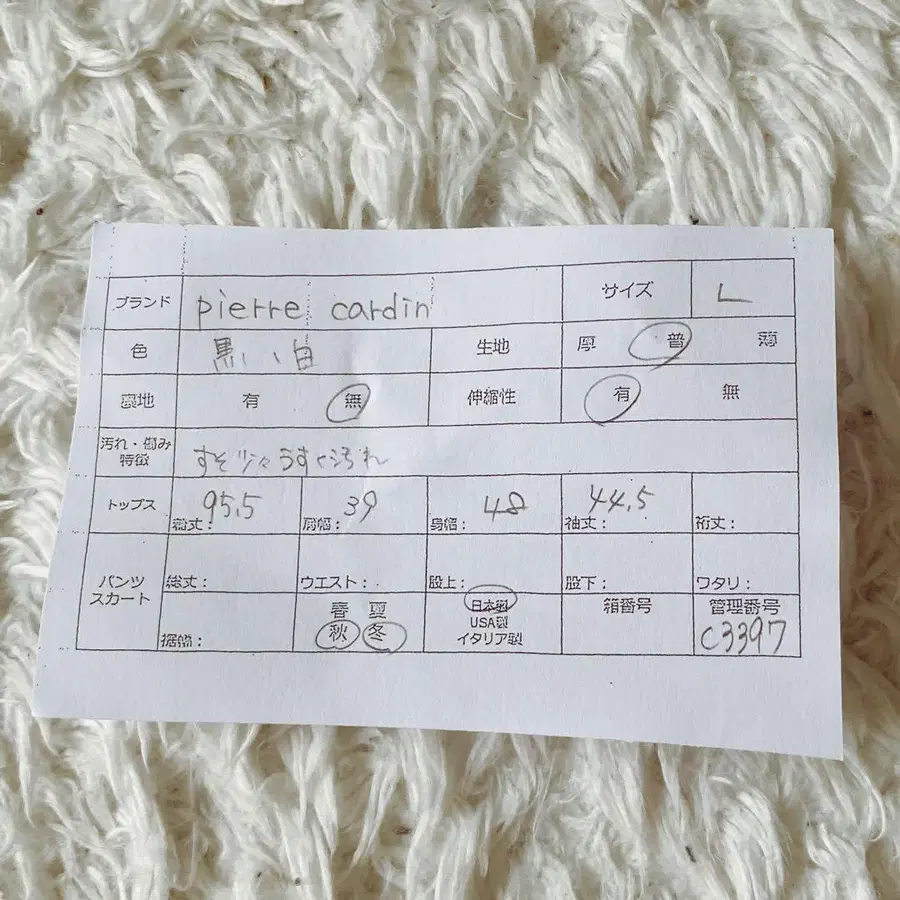 ブランド pierre cardin サイズ L
色 黒、白 生地 厚 普 薄
裏地 有 無 伸縮性 有 無
汚れ・傷み
特徴 すそ少々うすく汚れ
トップス 着丈: 95.5 肩幅: 39 身幅: 48 袖丈: 44.5 裄丈:
パンツ
スカート 総丈: ウエスト: 股上: 股下: ワタリ:
裾幅: 春 夏 秋 冬 日本製 USA製 イタリア製 箱番号 管理番号 C3397